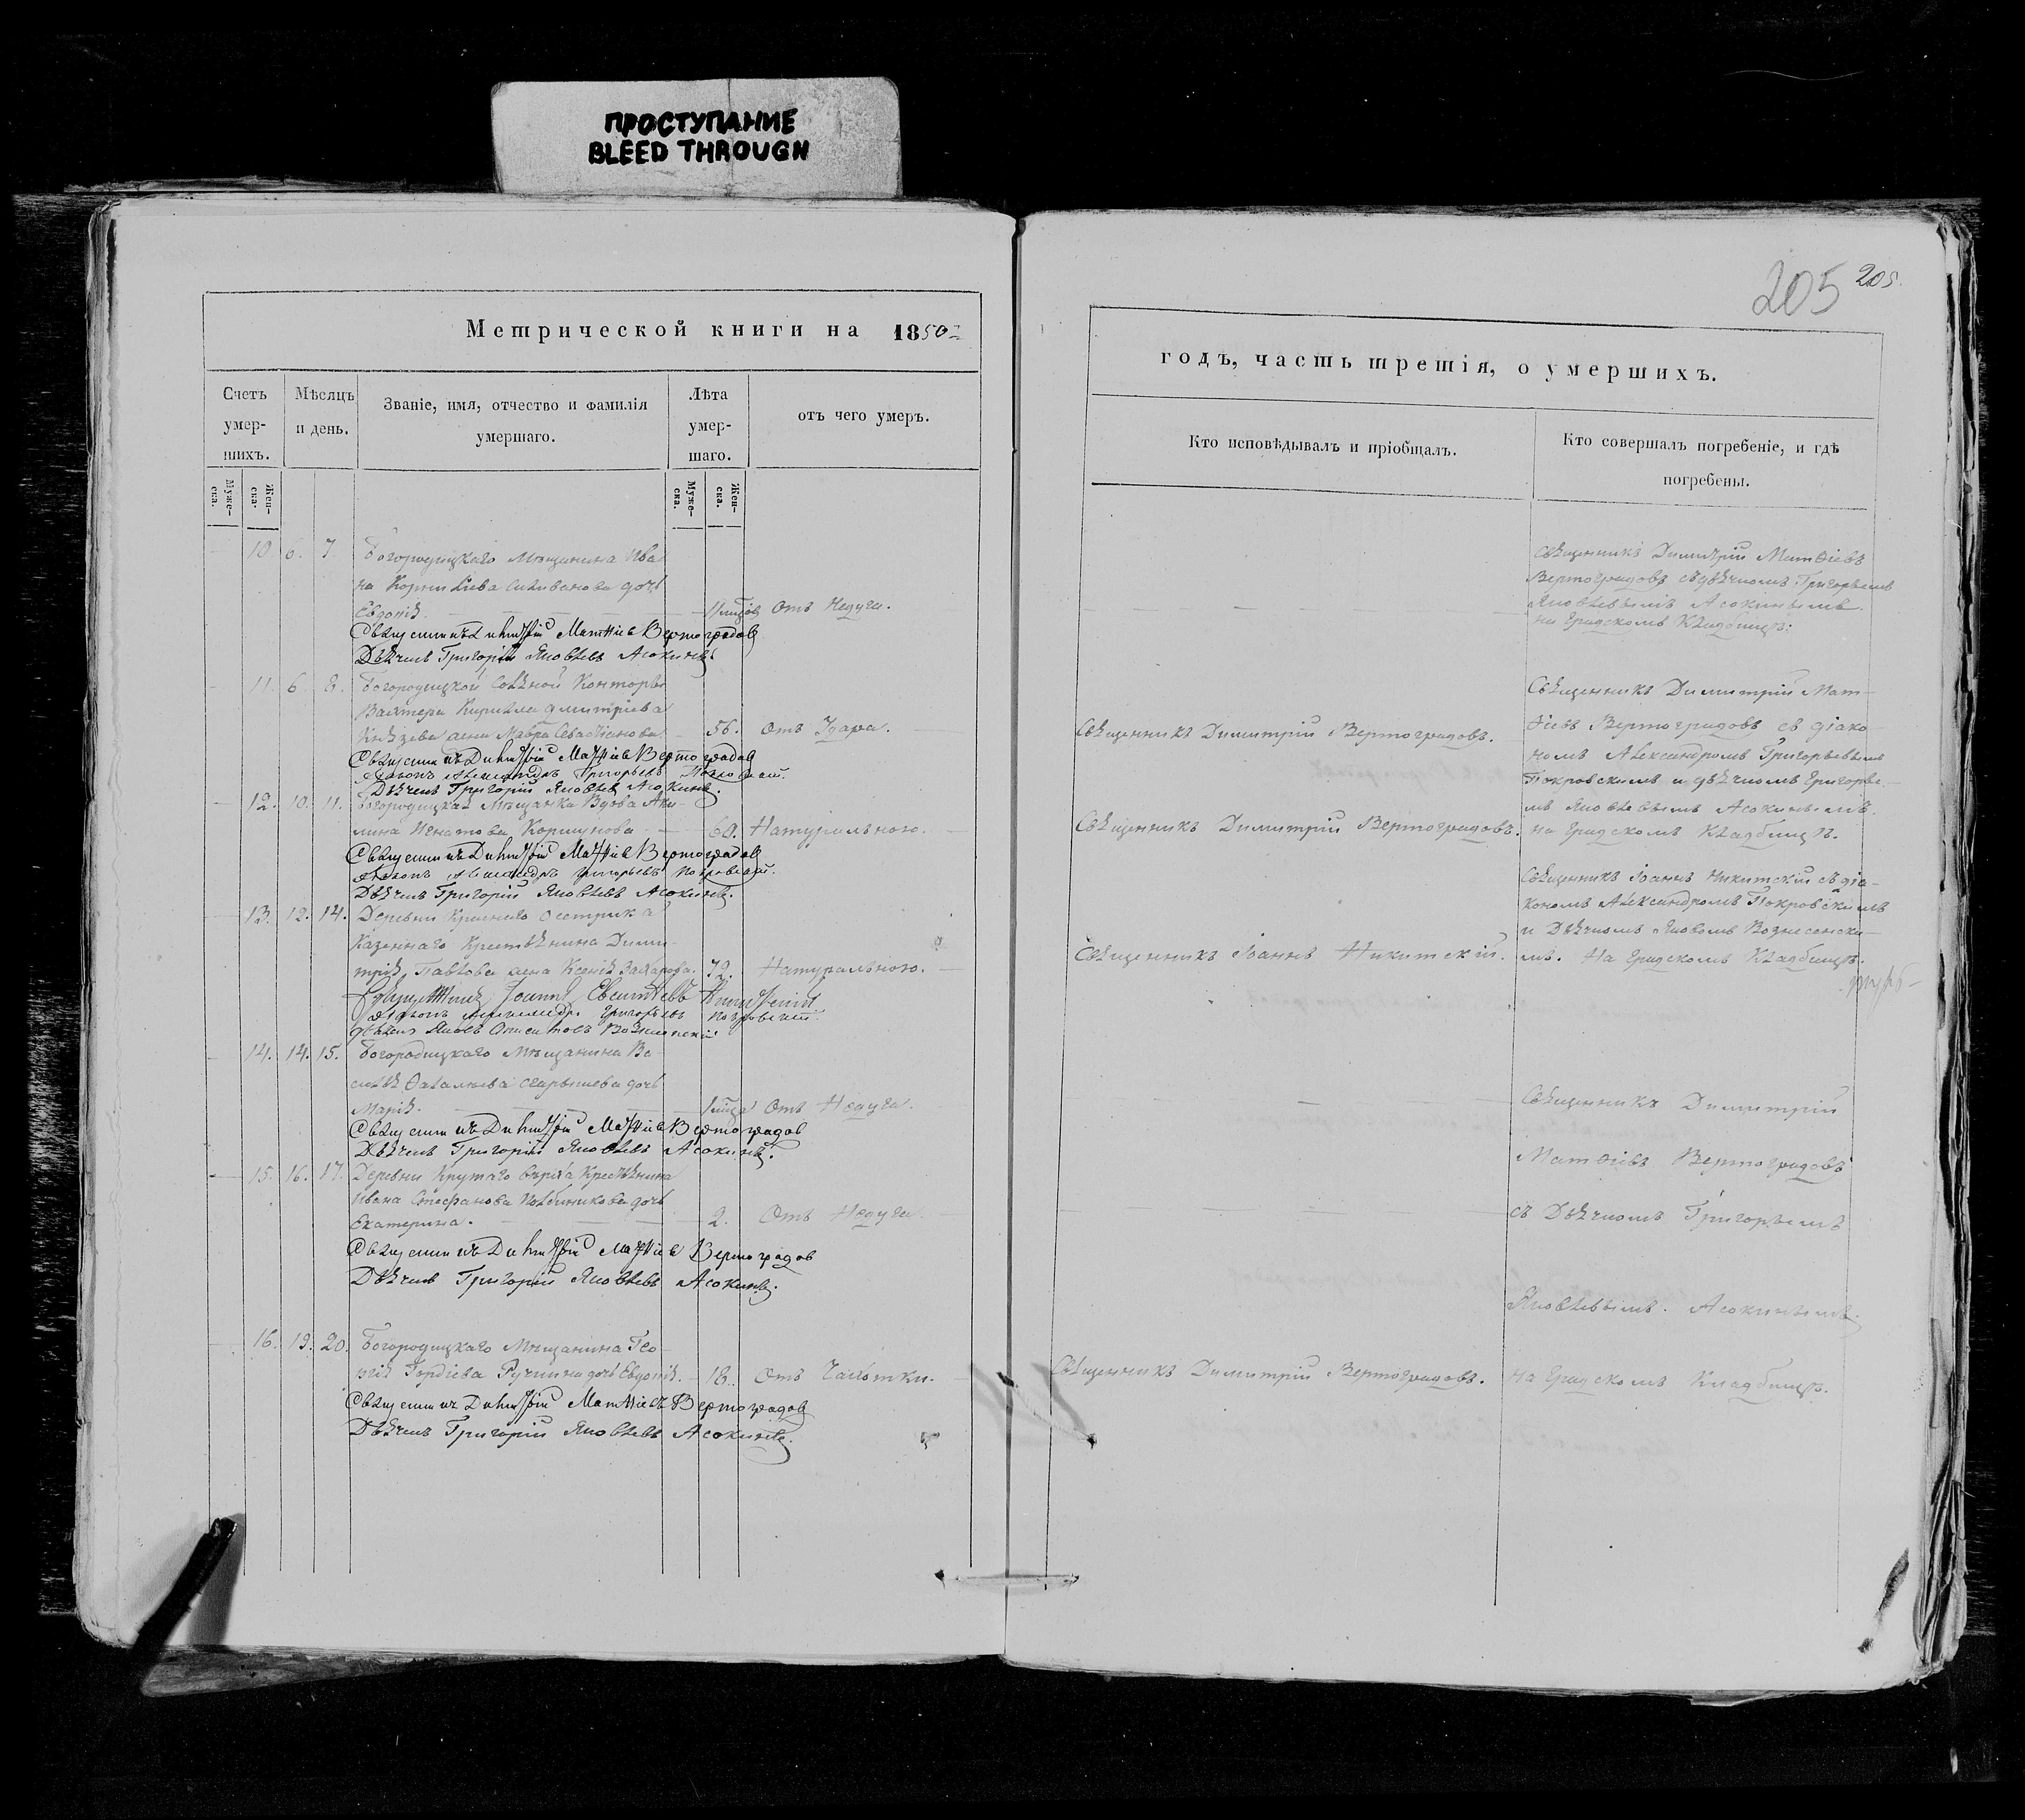 ПРОСТУПАНИЕ
BLEED THROUGH
205 205.
Метрической книги на 1850
Счетъ умер-шихъ.
Мѣсяцъ и день.
Званіе, имя, отчество и фамилія умершаго.
Лѣта умер-шаго.
отъ чего умеръ.
Муже-ска.
Жен-ска.
Муже-ска.
Жен-ска.
10. 6. 7. Богородицкаго Мѣщанина Ива
на Корнилiева Силиванова дочь
Евдокія. Отъ Недуга.
Священникъ Димитрій Матѳіевъ Вертоградовъ
Дьячекъ Григорій Яковлевъ Асокинъ
11. 6. 8. Богородицкой Соляной Конторы
Вахтера Кирилла Дмитріева
Князева жена Мавра Севастіанова. 56. Отъ Удара.
Священникъ Димитрій Матѳіевъ Вертоградовъ
Діаконъ Александръ Григорьевъ Покровскій.
Дьячекъ Григорій Яковлевъ Асокинъ.
12. 10. 11. Богородицкая Мѣщанка Вдова Аку-
лина Игнатова Коршунова 60. Натуральною.
Священникъ Димитрій Матѳіевъ Вертоградовъ
Діаконъ Александръ Григорьевъ Покровскій.
Дьячекъ Григорій Яковлевъ Асокинъ.
13. 12. 14. Деревни Краснаго Осетрика
Казеннаго Крестьянина Дими-
трія Павлова жена Ксенія Захарова. 72. Натуральною.
Священникъ Іоаннъ Никитскій
Діаконъ Александръ Григорьевъ Покровскій.
Дьячекъ Яковъ Вознесенскій
14. 14. 15. Богородицкаго Мѣщанина Ва-
силья дочь
Марія. Отъ Недуга.
Священникъ Димитрій Матѳіевъ Вертоградовъ
Дьячекъ Григорій Яковлевъ Асокинъ.
15. 16. 17. Деревни Крутаго Верха Крестьянина
Ивана Стефанова дочь
Екатерина. 2. Отъ Недуга.
Священникъ Димитрій Матѳіевъ Вертоградовъ
Дьячекъ Григорій Яковлевъ Асокинъ.
16. 19. 20. Богородицкаго Мѣщанина Гео-
ргія Гордіева Ручкина дочь Евдокія. 18. Отъ Чахотки.
Священникъ Димитрій Матѳіевъ Вертоградовъ
Дьячекъ Григорій Яковлевъ Асокинъ.
годъ, часть третія, о умершихъ.
Кто исповѣдывалъ и пріобщалъ.
Кто совершалъ погребеніе, и гдѣ погребены.
Священникъ Димитрій Матѳіевъ
Вертоградовъ съ дьячкомъ Григорьемъ
Яковлевымъ Асокинымъ
на Градскомъ Кладбищѣ.
Священникъ Димитрій Мат-
Священникъ Димитрій Вертоградовъ. ѳіевъ Вертоградовъ съ діако-
номъ Александромъ Григорьевымъ
Покровскимъ и дьячкомъ Григорье-
мъ Яковлевымъ Асокинымъ
Священникъ Димитрій Вертоградовъ. на Градскомъ Кладбищѣ.
Священникъ Іоаннъ Никитскій съ діа-
кономъ Александромъ Покровскимъ
и Дьячкомъ Яковомъ Вознесенски-
Священникъ Іоаннъ Никитскій. мъ. На Градскомъ Кладбищѣ.
Священникъ Димитрій
Матѳіевъ Вертоградовъ
съ Дьячкомъ Григорьемъ
Яковлевымъ Асокинымъ.
Священникъ Димитрій Вертоградовъ. на Градскомъ Кладбищѣ.